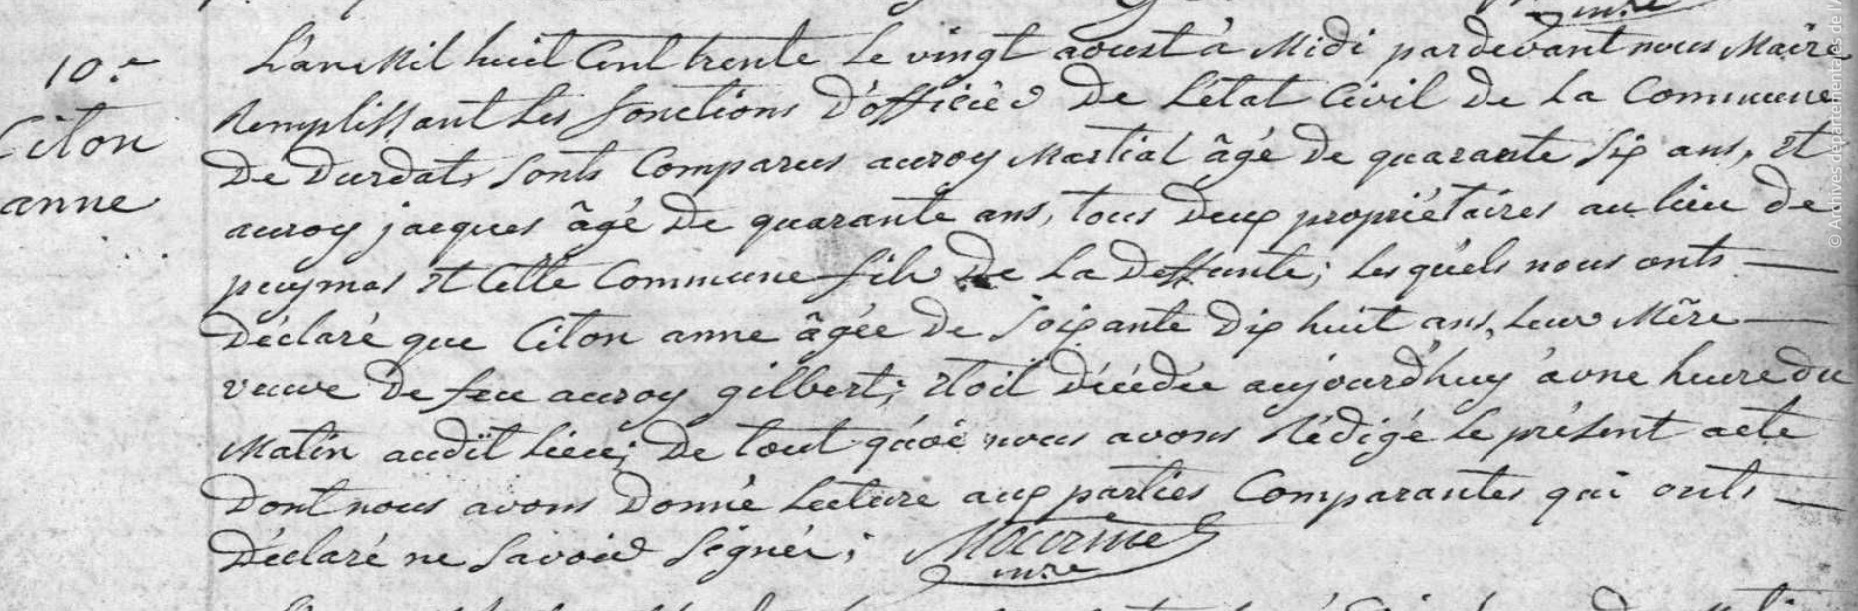 10.e
Citon
anne
L'an Mil huit Cent trente Le vingt aoust à Midi pardevant nous Maire
Remplissant Les fonctions D'officier De L'état Civil De La Commune
De Durdat, sonts Comparus auroy Martial âgé De quarante Six ans, Et
auroy jacques âgé De quarante ans, tous Deux propriétaires au lieu De
puymas Et Cette Commune fils De La Deffunte; Lesquels nous onts
Déclaré que Citon anne âgée De soixante Dix huit ans, Leur Mère
veuve De feu auroy gilbert; Etoit Décédée aujourd'huy à une heure du
Matin audit Lieu; De tout quoi nous avons Rédigé Le présent acte
Dont nous avons Donné Lecture aux parties Comparantes qui onts
Déclaré ne Savoir Signer;
mre
© Archives départementales de l'A